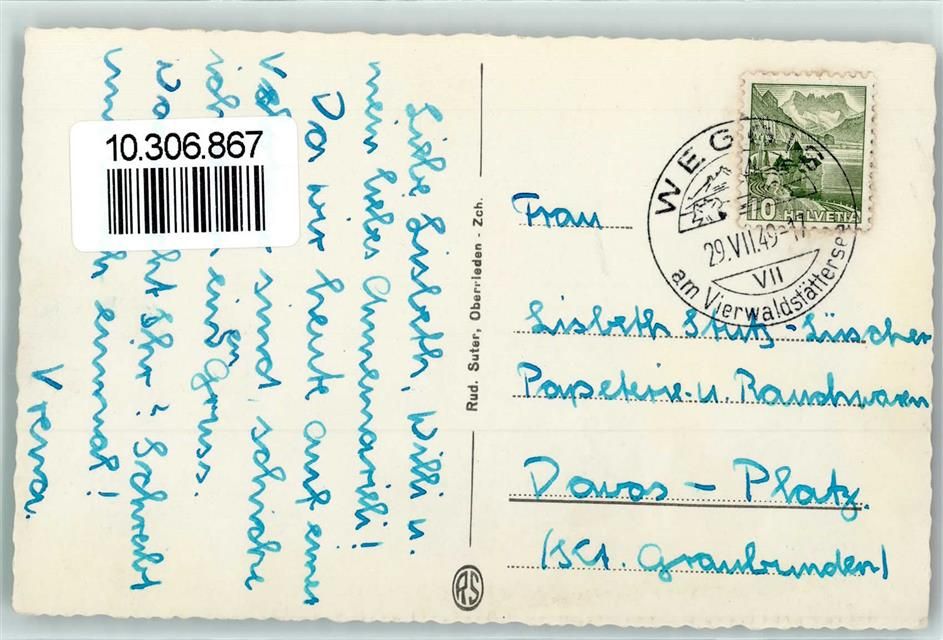 Liebe Lisbeth, Willi u.
mein liebes Annemarieli!
Da wir heute auf einer
sind, schicke
ich einen
Gruss.
Ihr? Schreibt
einmal!
Vrena.
10.306.867
Rud. Suter, Oberrieden - Zch.
RS
WEGGIS
29.VII.49-17
VII
am Vierwaldstättersee
10 HELVETIA
Frau
Lisbeth Stutz-Lüscher
Papeterie u. Rauchwaren
Davos - Platz.
(Kt. Graubünden)